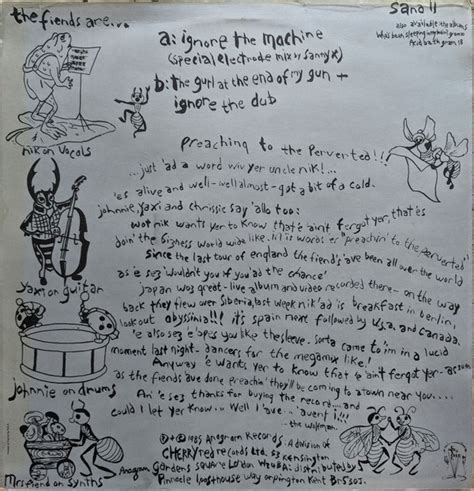 the fiends are...
sano 11
also available the albums
who's been sleeping in my brain grama
Acid bath gram 18
a: ignore the machine
(special electrode mix by sannyx)
b: the gurl at the end of my gun +
ignore the dub
nik on vocals
preaching to the perverted!!
...just 'ad a word wiv yer uncle nik!...
'es alive and well-well almost-got a bit of a cold.
johnnie, yaxi and chrissie say 'allo too:
wot nik wants yer to know is that e 'ain't fergot yer, that 'es
doin' the bigness world wide like. 'il is words er "preachin' to the perverted"
since the last tour of england the fiend's 'ave been all over the world
as 'e sez 'wouldn't you if you 'ad the chance'
yaxi on guitar
Japan was great-live album and video recorded there-on the way
back they flew over Siberia, last week nik 'ad is breakfast in berlin,
look out abyssinia!! it's spain next followed by u.s.a, and canada.
'e also sez 'e 'opes you like the sleeve. sorta came to im in a lucid
moment last night-dancers for the megamix like!
Anyway e wants yer to know that e 'ain't fergot yer-
as the fiends 'ave done preachin' they'll be coming to a town near you....
johnnie on drums
An 'e ses thanks for buying the record....and
could I let yer know.. Well I 'ave.. 'aven't i!!!
-the wulfman.
℗+© 1985 Anagram Records. A division of
CHERRY red records Ltd. 53 Kensington
Gardens square London W2 4BA: distributed by
Pinnacle loosthouse way orpington Kent BR5 3QS.
Anagram
Mrs fiend on synths